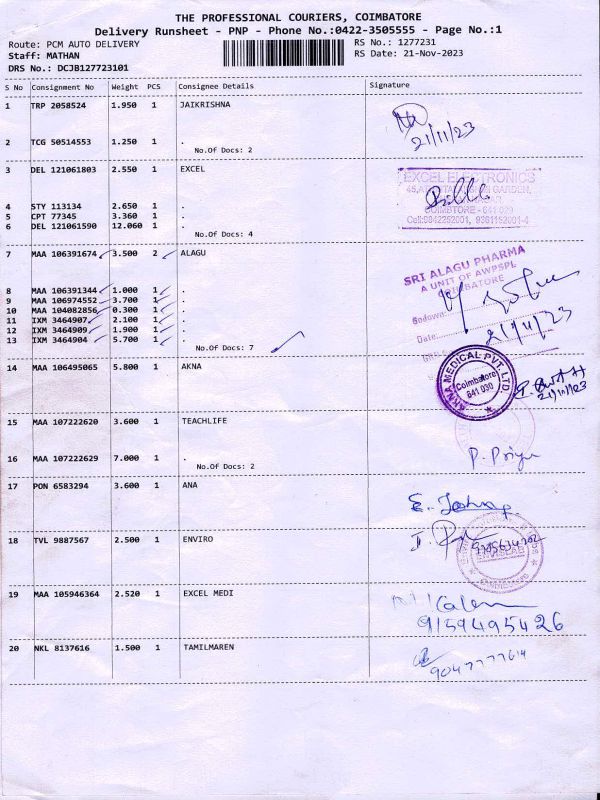 THE PROFESSIONAL COURIERS, COIMBATORE
Delivery Runsheet - PNP - Phone No.:0422-3505555 - Page No.:1
Route: PCM AUTO DELIVERY RS No.: 1277231
Staff: MATHAN RS Date: 21-Nov-2023
DRS No.: DCJB127723101
S No Consignment No Weight PCS Consignee Details Signature
1 TRP 2058524 1.950 1 JAIKRISHNA
21/11/23
2 TCG 50514553 1.250 1 .
No.Of Docs: 2
3 DEL 121061803 2.550 1 EXCEL
EXCEL ELECTRONICS
GARDEN,
4 STY 113134 2.650 1 .
5 CPT 77345 3.360 1 .
COIMBTORE - 641 029
6 DEL 121061590 12.060 1 .
Cell:9842252001,
No.Of Docs: 4
7 MAA 106391674 3.500 2 ALAGU
SRI ALAGU PHARMA
A UNIT OF AWPSPL
COIMBATORE
8 MAA 106391344 1.000 1 .
9 MAA 106974552 3.700 1 .
10 MAA 104082856 0.300 1 .
Godown
11 IXM 3464907 2.100 1 .
12 IXM 3464909 1.900 1 .
Date 21/11/23
13 IXM 3464904 5.700 1 .
No.Of Docs: 7
14 MAA 106495065 5.800 1 AKNA
AKNA MEDICAL PVT. LTD.
Coimbatore
641 030
21/11/23
15 MAA 107222620 3.600 1 TEACHLIFE
16 MAA 107222629 7.000 1 .
P. Priya
No.Of Docs: 2
17 PON 6583294 3.600 1 ANA
18 TVL 9887567 2.500 1 ENVIRO
19 MAA 105946364 2.520 1 EXCEL MEDI
9159495426
20 NKL 8137616 1.500 1 TAMILMAREN
9047777614